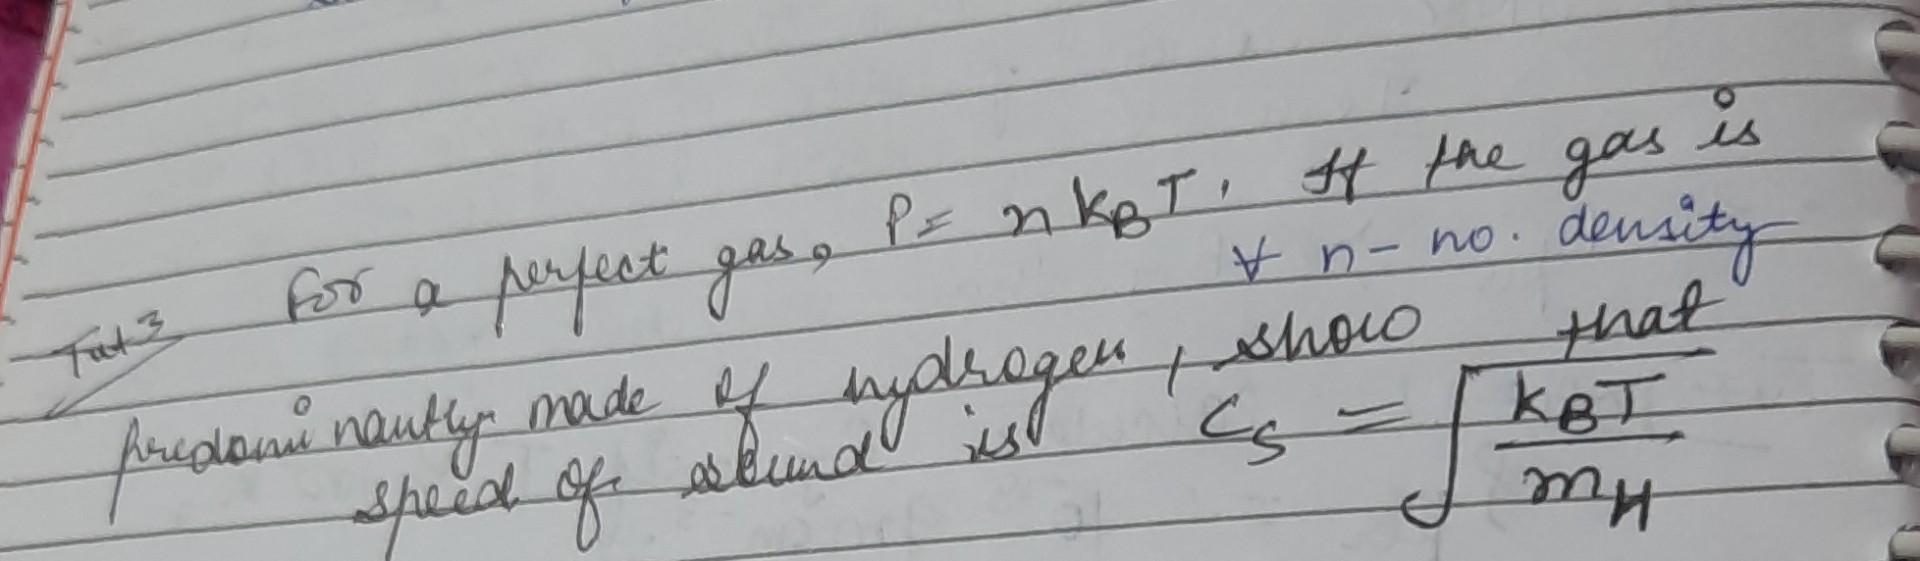 For a perfect gas, P = n k_B T. If the gas is
∀ n - no. density
Tut 3
predominantly made of hydrogen, show that
speed of sound is C_s = √(k_B T / m_H)